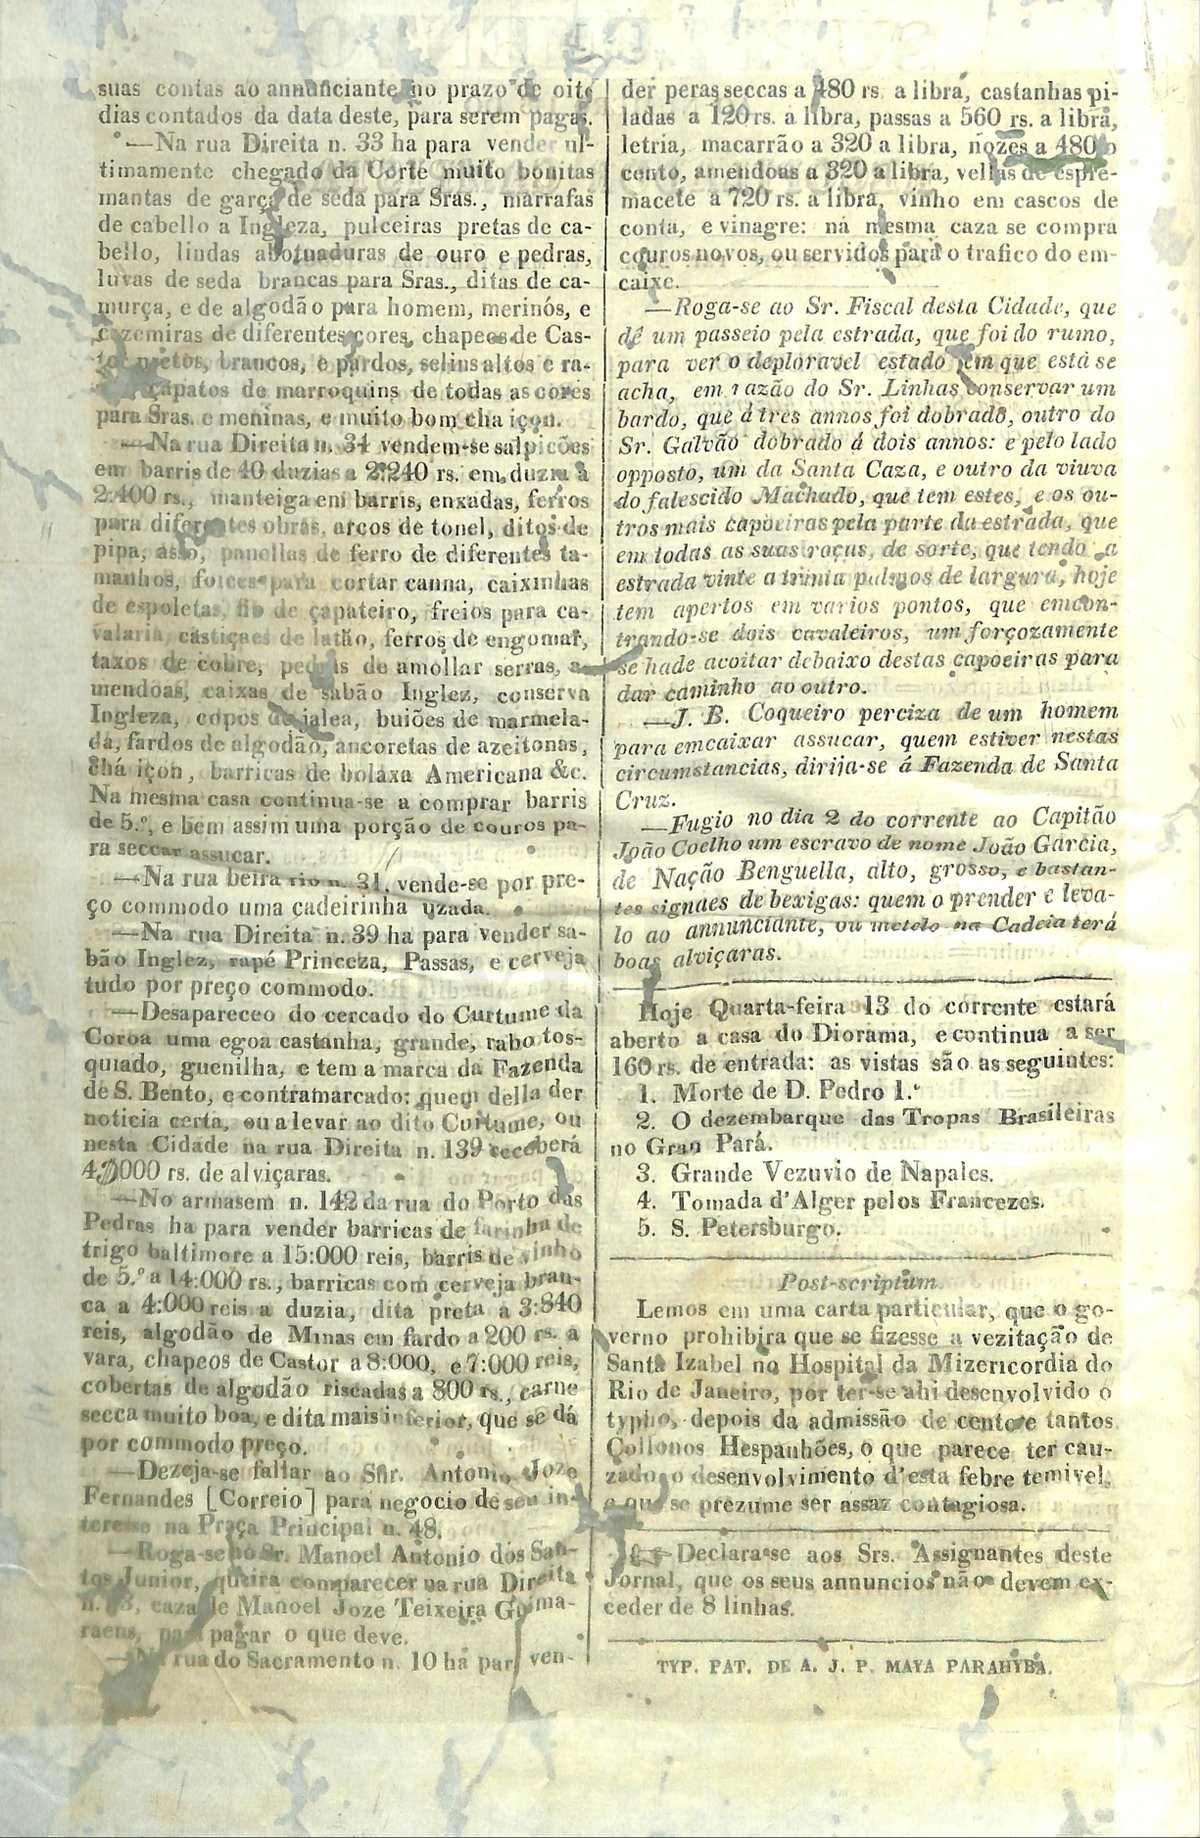 suas contas ao annunciante no prazo de oito
dias contados da data deste, para serem pagas.
—Na rua Direita n. 33 ha para vender ul-
timamente chegado da Corte muito bonitas
mantas de garça de seda para Sras., marrafas
de cabello a Ingleza, pulceiras pretas de ca-
bello, lindas abotuaduras de ouro e pedras,
luvas de seda brancas para Sras., ditas de ca-
murça, e de algodão para homem, merinós, e
cazemiras de diferentes cores, chapeos de Cas-
tor pretos, brancos, e pardos, selins altos e ra-
çapatos de marroquins de todas as cores
para Sras. e meninas, e muito bom cha içon.
—Na rua Direita n. 34 vendem-se salpicões
em barris de 40 duzias a 2:240 rs. em duzia a
2:400 rs., manteiga em barris, enxadas, ferros
para diferentes obras, arcos de tonel, ditos de
pipa, asso, panellas de ferro de diferentes ta-
manhos, foices para cortar canna, caixinhas
de espoletas, fio de çapateiro, freios para ca-
valaria, castiçaes de latão, ferros de engomar,
taxos de cobre, pedras de amollar serras, a-
mendoas, caixas de sabão Inglez, conserva
Ingleza, copos de jalea, buiões de marmela-
da, fardos de algodão, ancoretas de azeitonas,
chá içon, barricas de bolaxa Americana &c.
Na mesma casa continua-se a comprar barris
de 5.º, e bem assim uma porção de couros pa-
ra seccar assucar.
—Na rua beira rio n. 31, vende-se por pre-
ço commodo uma cadeirinha uzada.
—Na rua Direita n. 39 ha para vender sa-
bão Inglez, rapé Princeza, Passas, e cerveja
tudo por preço commodo.
—Desapareceo do cercado do Curtume da
Coroa uma egoa castanha, grande, rabo tos-
quiado, guenilha, e tem a marca da Fazenda
de S. Bento, e contramarcado: quem della der
noticia certa, ou a levar ao dito Curtume, ou
nesta Cidade na rua Direita n. 139 receberá
4,000 rs. de alviçaras.
—No armasem n. 142 da rua do Porto das
Pedras ha para vender barricas de farinha de
trigo baltimore a 15:000 reis, barris de vinho
de 5.º a 14:000 rs., barricas com cerveja bran-
ca a 4:000 reis a duzia, dita preta a 3:840
reis, algodão de Minas em fardo a 200 rs. a
vara, chapeos de Castor a 8:000, e 7:000 reis,
cobertas de algodão riscadas a 800 rs., carne
secca muito boa, e dita mais inferior, que se dá
por commodo preço.
—Dezeja-se fallar ao Snr. Antonio Joze
Fernandes [Correio] para negocio de seu in-
teresse na Praça Principal n. 48.
—Roga-se ao Sr. Manoel Antonio dos San-
tos Junior, queira comparecer na rua Direita
caza de Manoel Joze Teixeira Guima-
raens, para pagar o que deve.
—Na rua do Sacramento n. 10 ha par ven-
der peras seccas a 480 rs. a libra, castanhas pi-
ladas a 120 rs. a libra, passas a 560 rs. a libra,
letria, macarrão a 320 a libra, nozes a 480 o
cento, amendoas a 320 a libra, vellas de espre-
macete a 720 rs. a libra, vinho em cascos de
conta, e vinagre: na mesma caza se compra
couros novos, ou servidos para o trafico do em-
caixe.
—Roga-se ao Sr. Fiscal desta Cidade, que
dê um passeio pela estrada, que foi do rumo,
para ver o deploravel estado em que está se
acha, em razão do Sr. Linhas conservar um
bardo, que á tres annos foi dobrado, outro do
Sr. Galvão dobrado á dois annos: e pelo lado
opposto, um da Santa Caza, e outro da viuva
do falescido Machado, que tem estes, e os ou-
tros mais capoeiras pela parte da estrada, que
em todas as suas roças, de sorte, que tendo a
estrada vinte a trinta palmos de largura, hoje
tem apertos em varios pontos, que emcon-
trando-se dois cavaleiros, um forçozamente
se hade acoitar debaixo destas capoeiras para
dar caminho ao outro.
—J. B. Coqueiro perciza de um homem
para emcaixar assucar, quem estiver nestas
circumstancias, dirija-se á Fazenda de Santa
Cruz.
—Fugio no dia 2 do corrente ao Capitão
João Coelho um escravo de nome João Garcia,
de Nação Benguella, alto, grosso, e bastan-
tes signaes de bexigas: quem o prender e leva-
lo ao annunciante, ou metelo na Cadeia terá
boas alviçaras.
Hoje Quarta-feira 13 do corrente estará
aberto a casa do Diorama, e continua a ser
160 rs. de entrada: as vistas são as seguintes:
1. Morte de D. Pedro 1.º
2. O dezembarque das Tropas Brasileiras
no Gran Pará.
3. Grande Vezuvio de Napales.
4. Tomada d'Alger pelos Francezes.
5. S. Petersburgo.
Post-scriptum.
Lemos em uma carta particular, que o go-
verno prohibira que se fizesse a vezitação de
Santa Izabel no Hospital da Mizericordia do
Rio de Janeiro, por ter-se ahi desenvolvido o
typho, depois da admissão de cento e tantos
Collonos Hespanhões, o que parece ter cau-
zado o desenvolvimento d'esta febre temivel,
e que se prezume ser assaz contagiosa.
☞ Declara-se aos Srs. Assignantes deste
Jornal, que os seus annuncios não devem ex-
ceder de 8 linhas.
TYP. PAT. DE A. J. P. MAYA PARAHYBA.